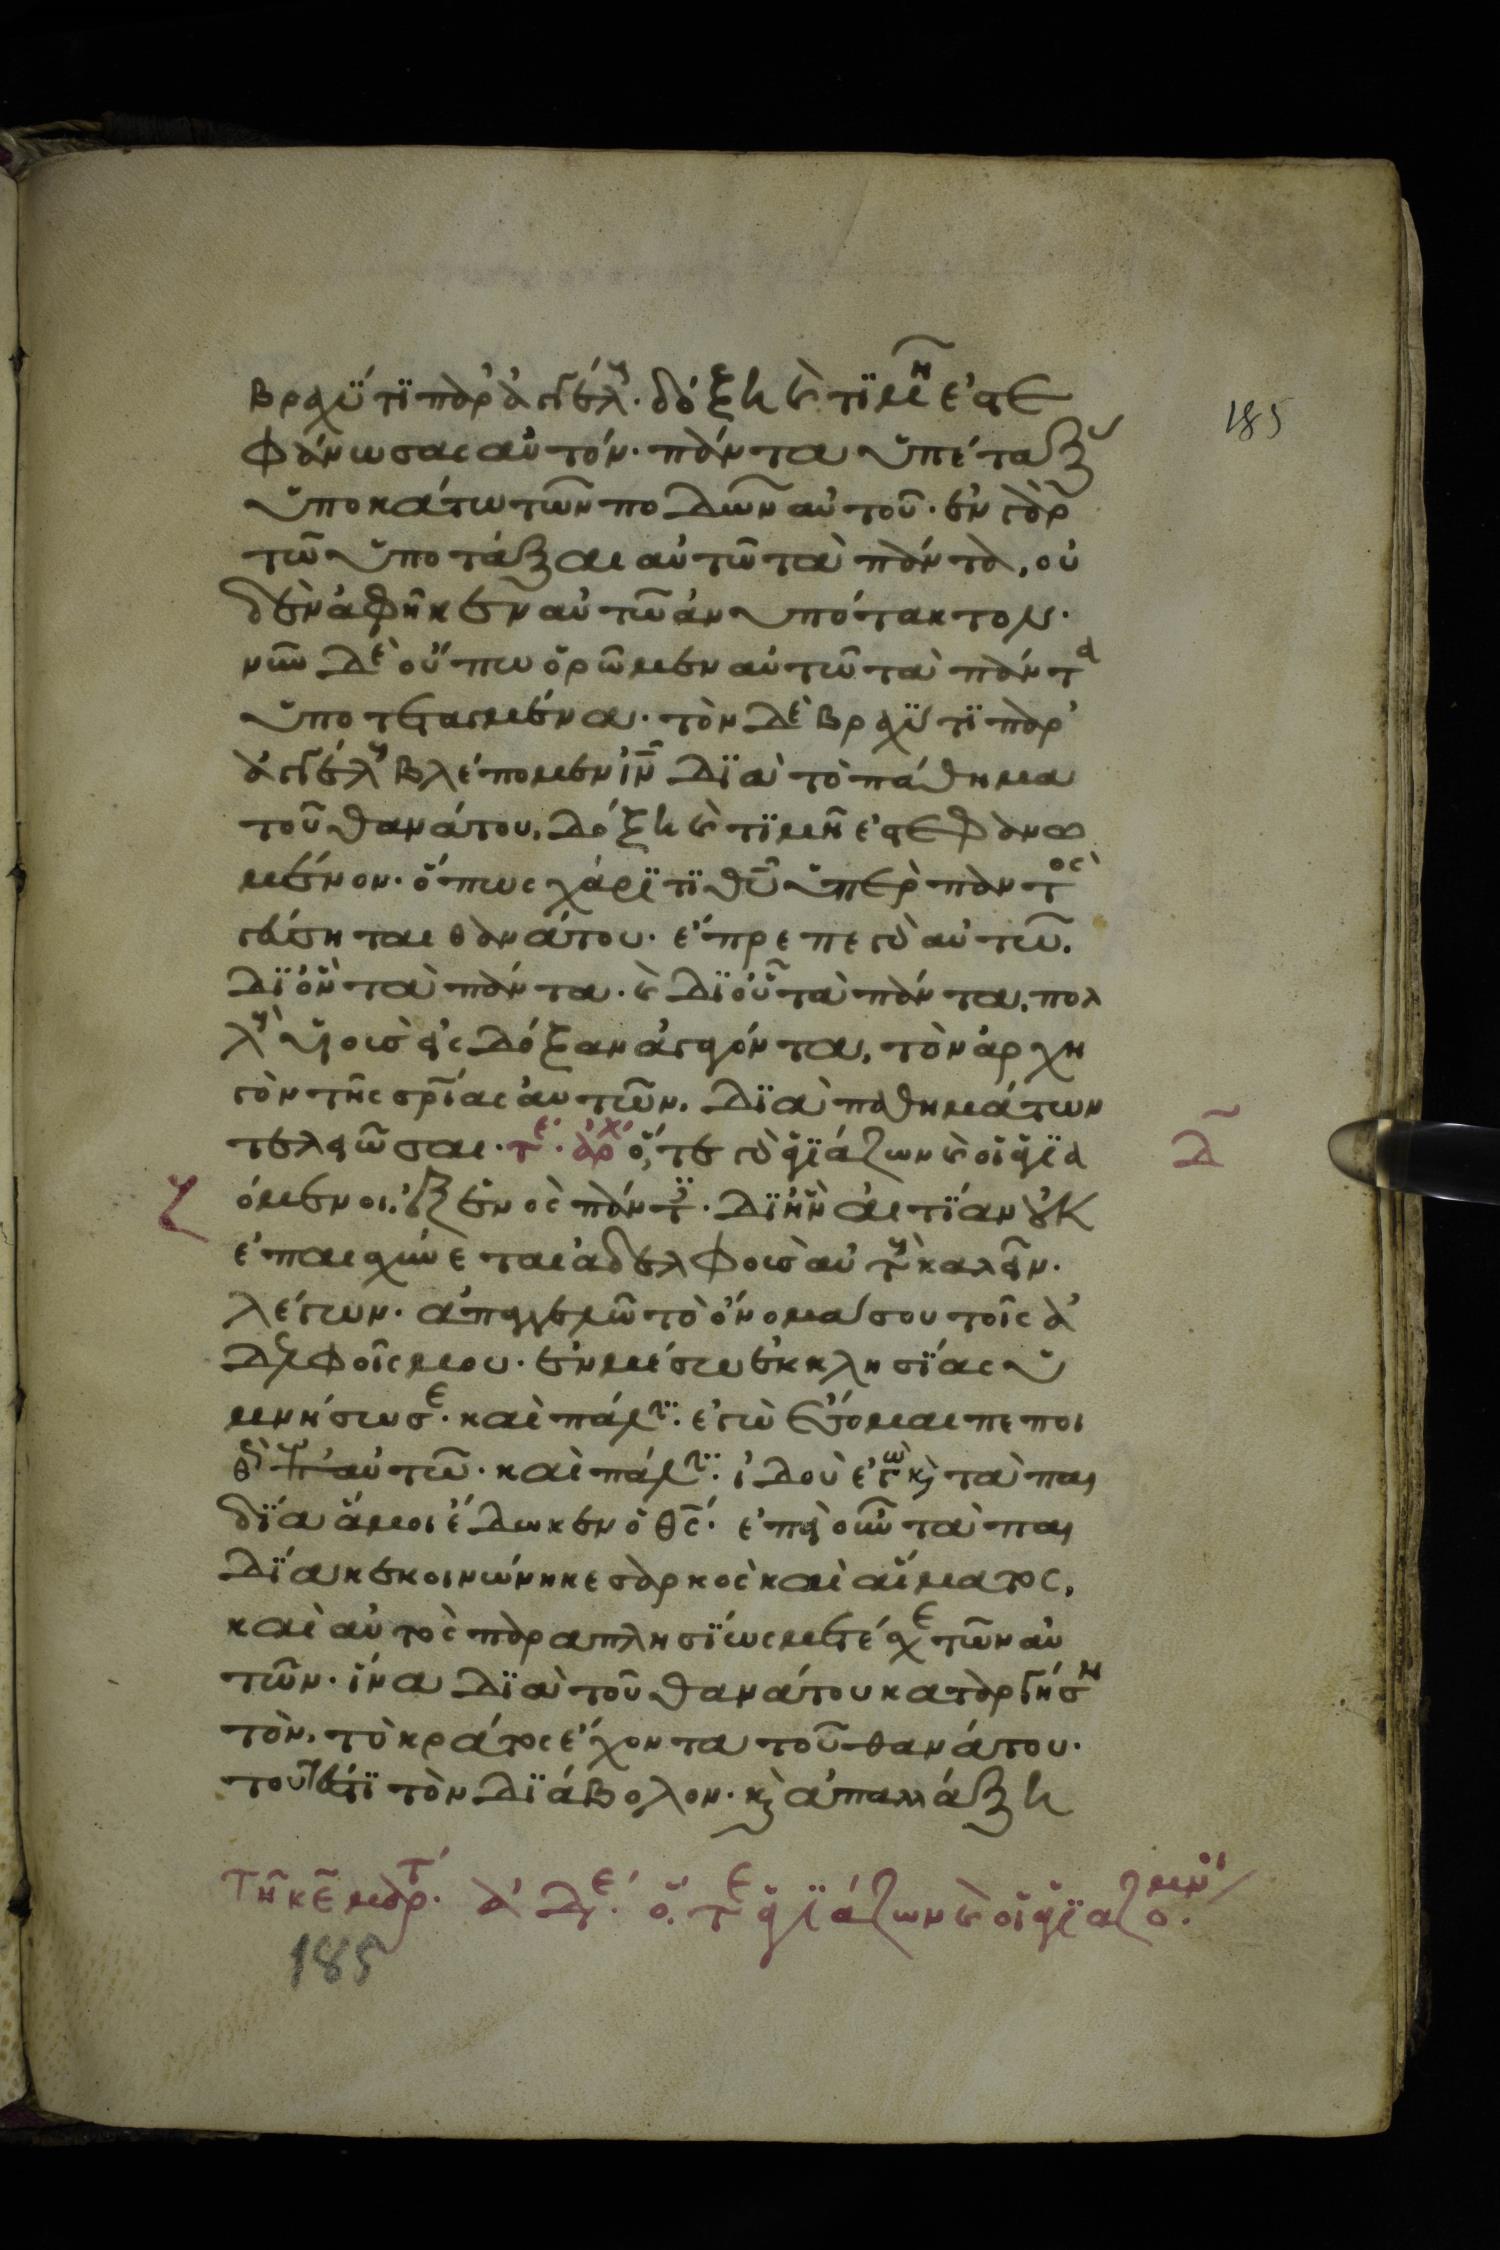 βραχύ τι παρ' ἀγγέλους· δόξη καὶ τιμῆ ἐστε
φάνωσας αὐτόν· πάντα ὑπέταξας
ὑποκάτω τῶν ποδῶν αὐτοῦ· ἐν γὰρ
τῶ ὑποτάξαι αὐτῶ τὰ πάντα, οὐ
δὲν ἀφῆκεν αὐτῶ ἀνυπότακτον·
νῦν δὲ οὔπω ὁρῶμεν αὐτῶ τὰ πάντα
ὑποτεταγμένα· τὸν δὲ βραχύ τι παρ'
ἀγγέλους βλέπομεν ιν̄ διὰ τὸ πάθημα
τοῦ θανάτου, δόξη καὶ τιμῆ ἐστεφανω
μένον· ὅπως χάριτι θῦ ὑπὲρ παντὸς
γεύσηται θανάτου· ἔπρεπε γὰρ αὐτῶ.
δι' ὃν τὰ πάντα· καὶ δι' οὗ τὰ πάντα, πολ
λοὺς υἱοὺς εἰς δόξαν ἀγαγόντα, τὸν ἀρχη
γὸν τῆς σρίας αὐτῶν. διὰ παθημάτων
τελειῶσαι· τε· ἀρχ ὅ, τε γὰρ ἁγιάζων καὶ οἱ ἁγια
όμενοι, ἐξ ἑνὸς πάντες· δι' ἣν αἰτίαν οὐκ
ἐπαισχύνεται ἀδελφοὺς αὐτοὺς καλεῖν·
λέγων· ἀπαγγελῶ τὸ ὄνομά σου τοῖς ἀ
δελφοῖς μου· ἐν μέσω ἐκκλησίας ὑ
μνήσω σε· καὶ πάλιν· ἐγὼ ἔσομαι πεποι
θὼς ἐπ' αὐτῶ· καὶ πάλιν· ἰδοὺ ἐγὼ καὶ τὰ παι
δία ἅ μοι ἔδωκεν ὁ θς· ἐπεὶ οὖν τὰ παι
δία κεκοινώνηκε σαρκὸς καὶ αἵματος,
καὶ αὐτὸς παραπλησίως μετέσχε τῶν αὐ
τῶν· ἵνα διὰ τοῦ θανάτου καταργήση
τὸν, τὸ κράτος ἔχοντα τοῦ θανάτου·
τουτέστι τὸν διάβολον· καὶ ἀπαλλάξη
τῆ κε μαρτ· ἀδε· ὅ, τε ἁγιάζων καὶ οἱ ἁγιαζομενοι
185
185